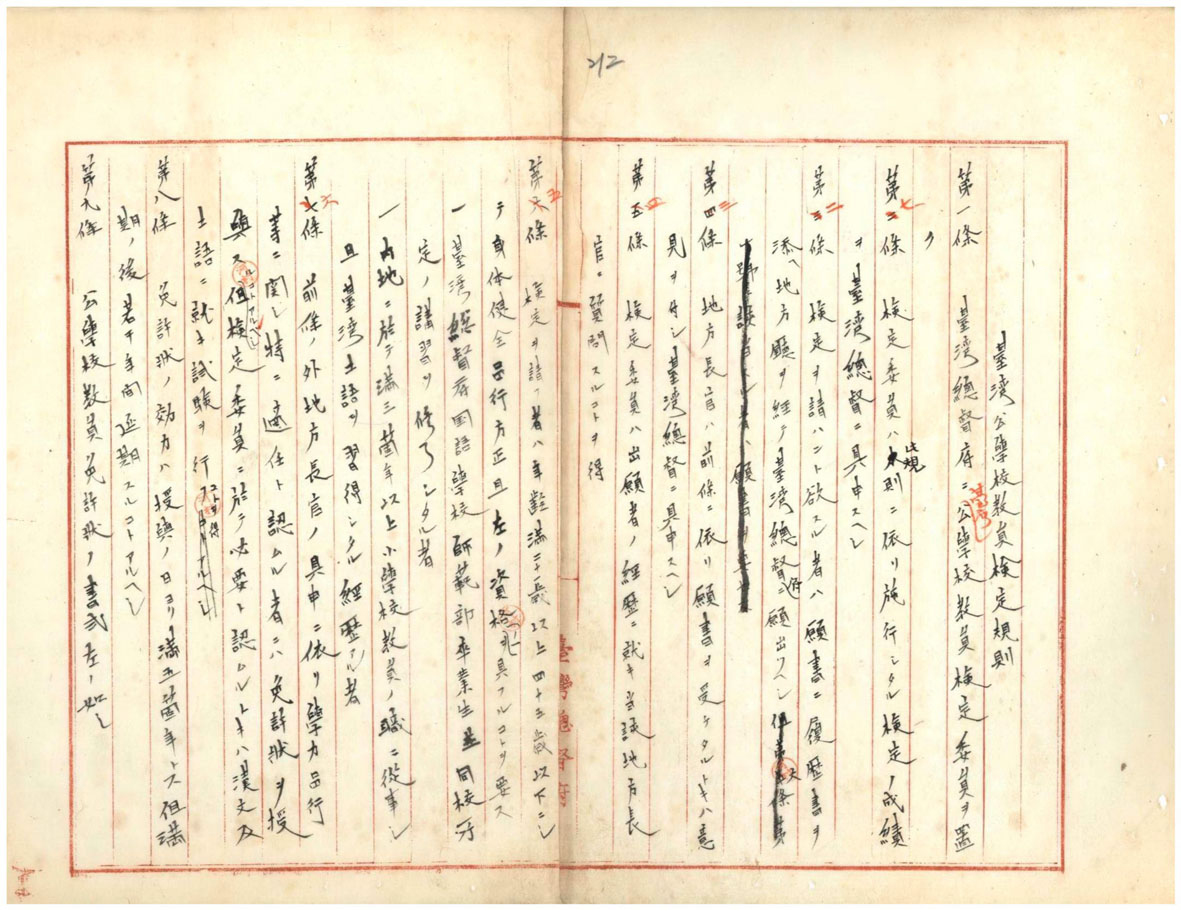 212
臺灣公學校教員檢定規則
第一條 臺湾總督府ニ臺湾公學校教員檢定委員ヲ置
ク
第七條 檢定委員ハ此規則ニ依リ施行シタル檢定ノ成績
ヲ臺湾總督ニ具申スヘシ
第三二條 檢定ヲ請ハント欲スル者ハ願書ニ履歴書ヲ
添ヘ地方廳ヲ經テ臺湾總督府ニ願出ツヘシ但第六條第
一號ニ該當スル者ハ願書ヲ要セ
第四三條 地方長官ハ前條ニ依リ願書ヲ受ケタルトキハ意
見ヲ付シ臺湾總督ニ具申スヘシ
第五四條 檢定委員ハ出願者ノ經歴ニ就キ当該地方長
官ニ質問スルコトヲ得
第六五條 檢定ヲ請フ者ハ年齡満二十歳以上四十五歳以下ニシ
テ身体健全品行方正且左ノ資格ノ一ヲ具フルコトヲ要ス
一 臺湾總督府国語學校師範部卒業生並同校所
定ノ講習ヲ修了シタル者
一 内地ニ於テ満三箇年以上小學校教員ノ職ニ從事シ
且臺湾土語ヲ習得シタル經歴アル者
第七六條 前條ノ外地方長官ノ具申ニ依リ學力品行
等ニ関シ特ニ適任ト認ムル者ニハ免許状ヲ授
與スルコトアルヘシ但檢定委員ニ於テ必要ト認ムルトキハ漢文及
土語ニ就キ試驗ヲ行フコトヲ得コトアルヘシ
第八條 免許状ノ効力ハ授與ノ日ヨリ満五箇年トス但満
期ノ後若干年間延期スルコトアルヘシ
第九條 公學校教員免許状ノ書式左ノ如シ
臺灣總督府